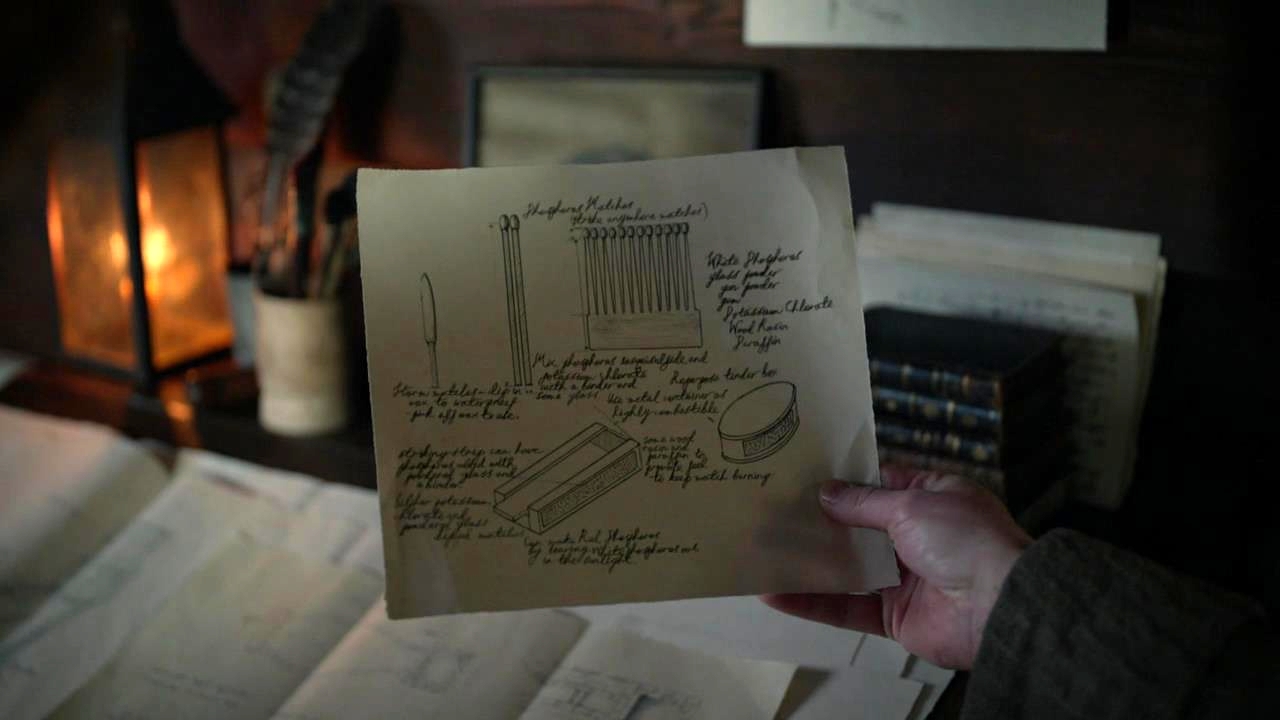 Phosphorus Matches
(strike anywhere matches)
White Phosphorus
glass powder
gun powder
gum
Potassium Chlorate
Wood Rosin
Paraffin
Mix phosphorus sesquisulfide and
potassium chlorate
with a binder and
some glass
Storm matches - dip in
wax to waterproof
- pick off wax to use.
Repurpose tender box
Use metal container as
highly combustible
striking strip can have
phosphorus mixed with
powdered glass and
a binder.
Sulphur potassium
chlorate and
powdered glass
matches
some wood
rosin and
paraffin to
provide fuel
to keep match burning
Can make Red Phosphorus
by leaving White Phosphorus out
in the sunlight.